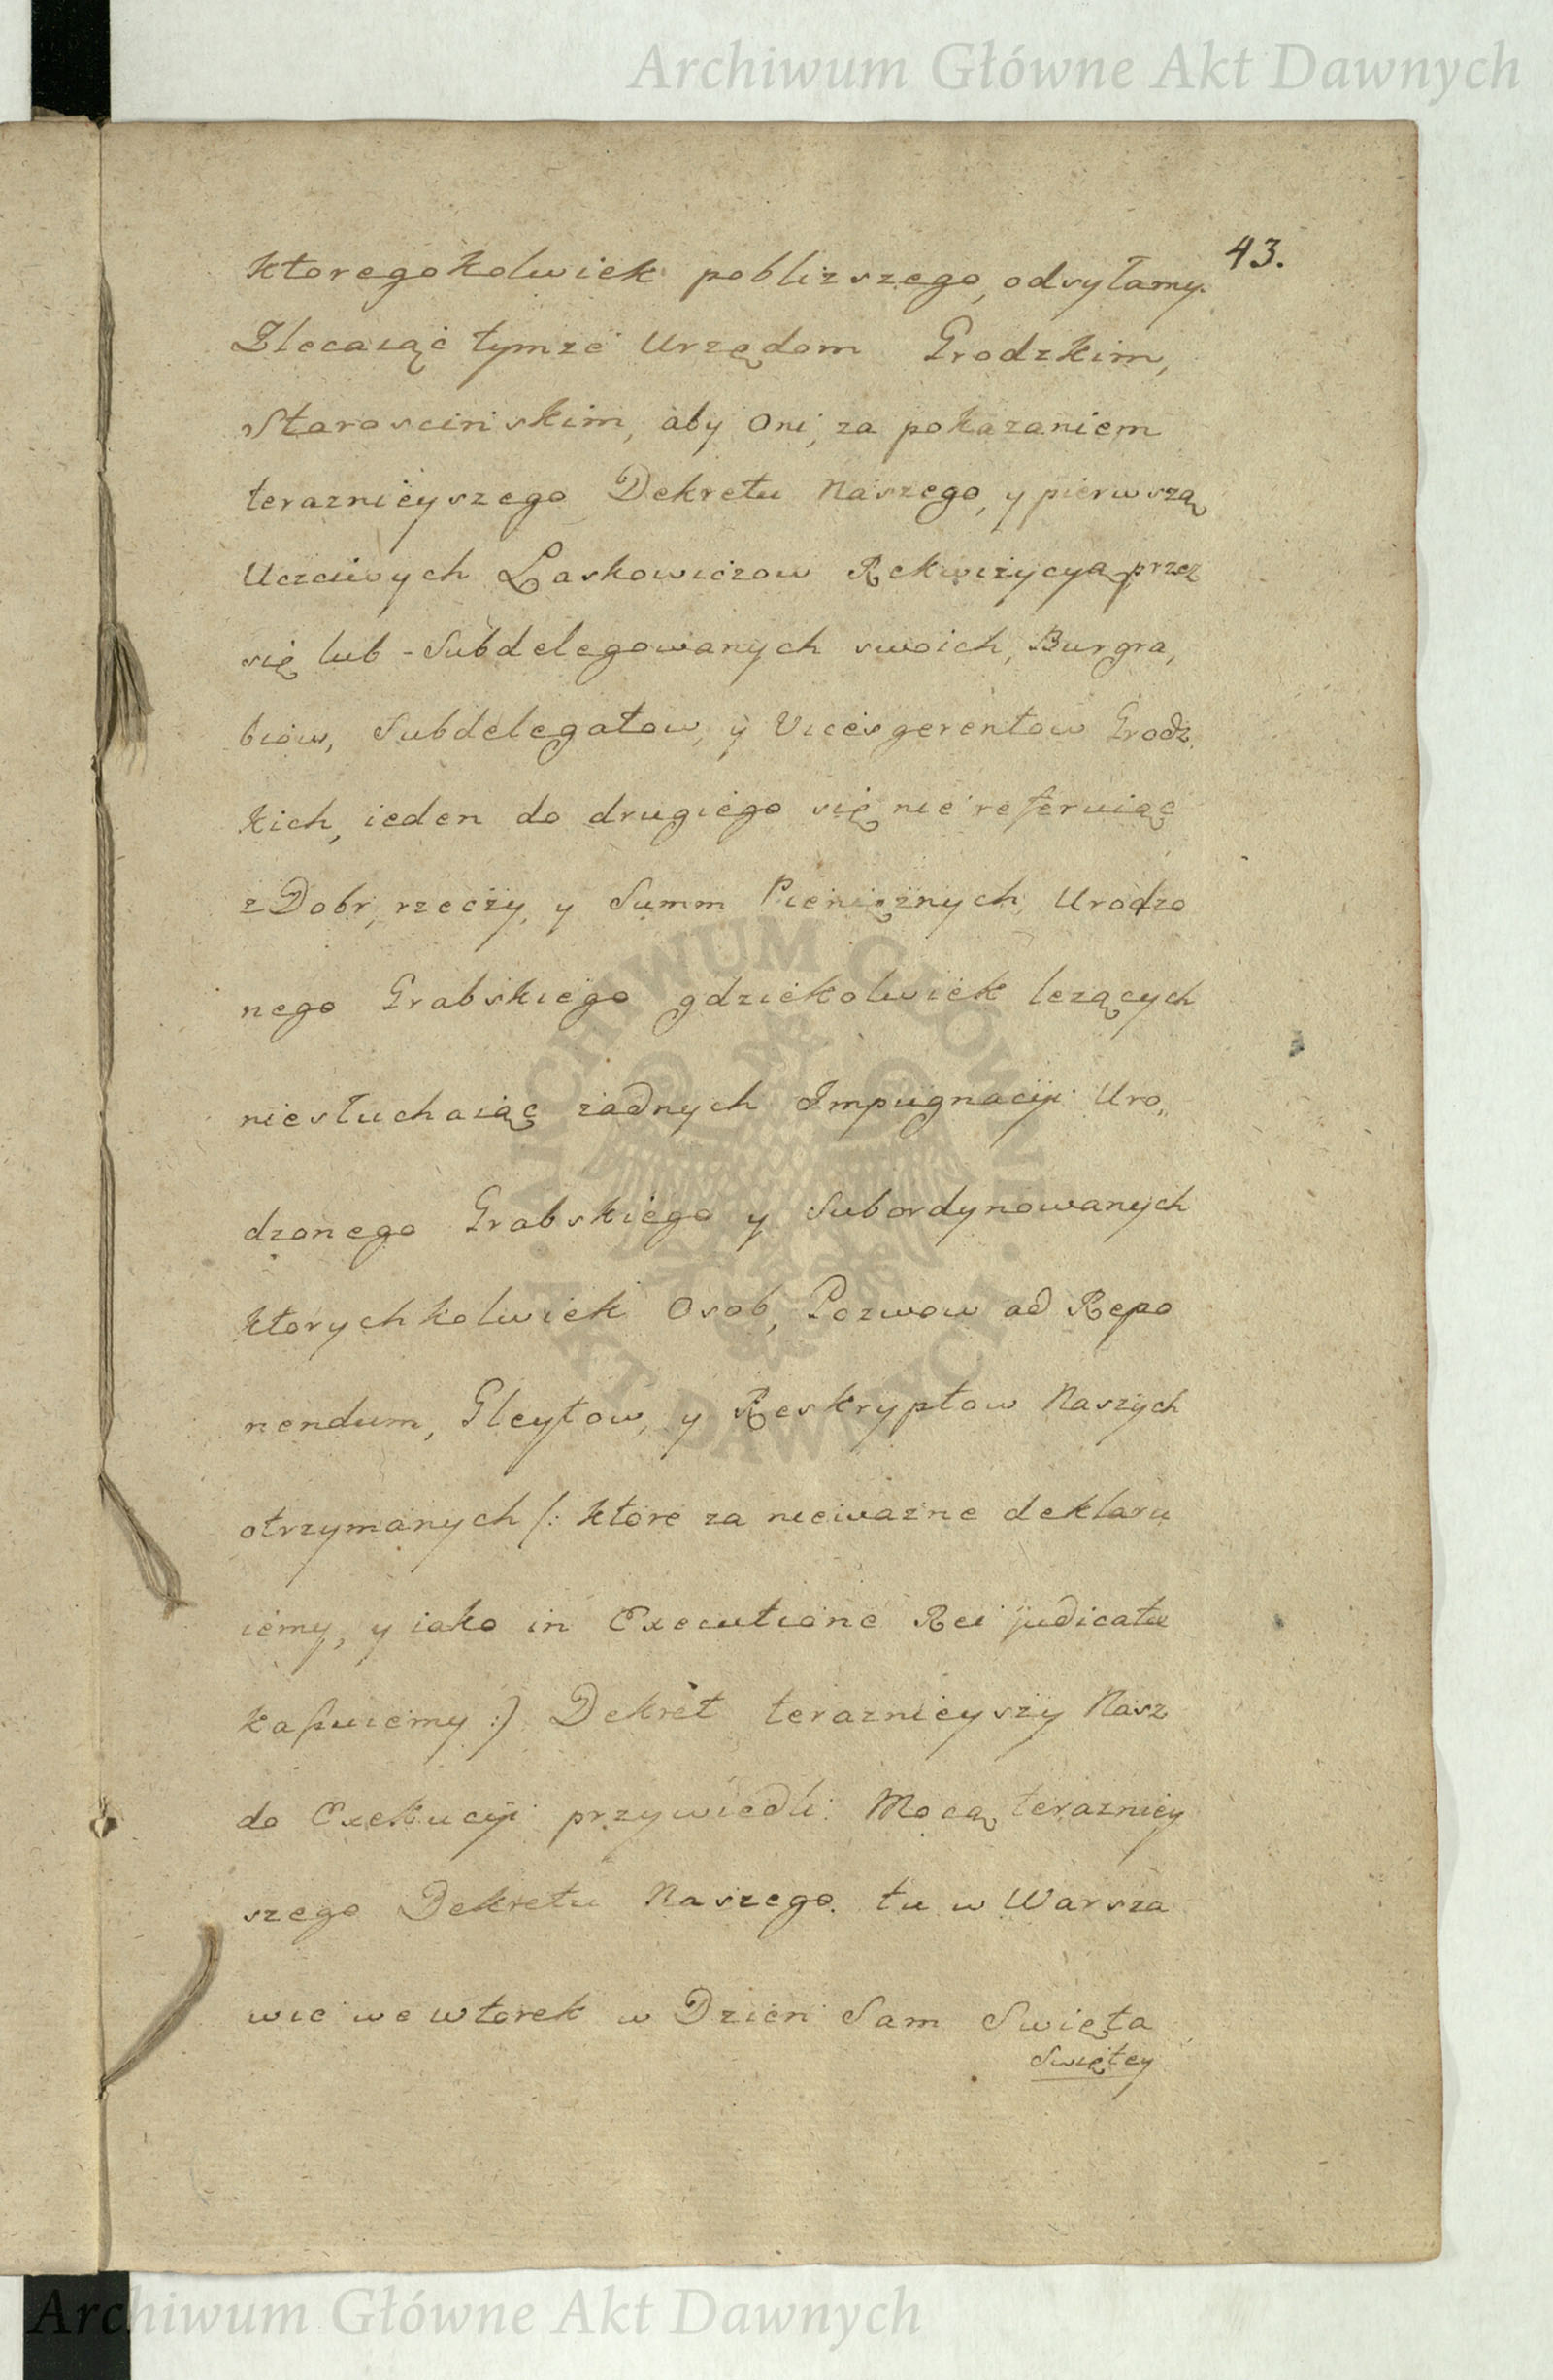 Archiwum Główne Akt Dawnych
43.
ktoregokolwiek poblizszego, odsyłamy.
Zlecaiąc tymze Urzędom Grodzkim,
Staroscinskim, aby oni, za pokazaniem
teraznieyszego Dekretu Naszego, y pierwszą
Uczciwych Laskowiczow Rekwizycyą przez
się lub - Subdelegowanych swoich, Burgra,
biow, Subdelegatow, y Vicesgerentow Grodz
kich, ieden do drugiego się nie referuiąc
z Dobr, rzeczy, y Summ Pieniężnych, Urodzo
nego Grabskiego gdziekolwiek lezących
niesłuchaiąc zadnych Impugnacyi Uro,,
dzonego Grabskiego y Subordynowanych
ktorychkolwiek Osob, Pozwow ad Repo
nendum, Gleytow, y Reskryptow Naszych
otrzymanych /: ktore za niewazne deklaru
iemy, y iako in Executione Rei judicatæ
kassuiemy :/ Dekret teraznieyszy Nasz
do Exekucyi przywiedli. Mocą terazniey
szego Dekretu Naszego. tu w Warsza
wie we wtorek w Dzien Sam Swięta
Swiętey
ARCHIWUM GŁÓWNE · AKT DAWNYCH ·
Archiwum Główne Akt Dawnych